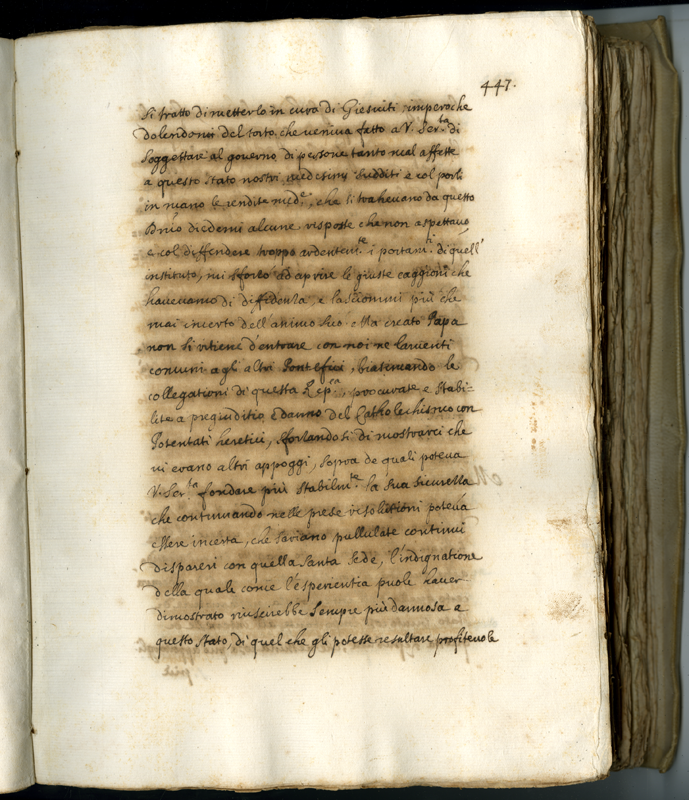 447.
si trattò di metterlo in cura di Giesuiti imperoche
dolendomi del torto, che veniua fatto a V. Ser.ta di
soggettare al gouerno di persone tanto mal affette
a questo stato nostri medesimi sudditi e col porli
in mano le rendite med.e, che si trahevano da questo
Dnio diedemi alcune risposte che non aspettauo
e col diffendere troppo ardentem.te i portam.ti di quell'
instituto, mi sforzò ad aprire le giuste caggioni che
haueuamo di diffidenza, e lasciommi più che
mai incerto dell'animo suo. Ma creato Papa
non si ritiene d'entrare con noi ne lamenti
comuni agli altri Pontefici, biasimando le
collegationi di questa Rep.ca, procurate e stabi-
lite a pregiuditio e danno del Catholechismo con
Potentati heretici, sforzandosi di mostrarci che
vi erano altri appoggi, sopra de quali poteua
V. Ser.ta fondare più stabilm.te la sua sicurezza
che continuando nelle prese risolutioni poteua
essere incerta, che sariano pullulate continui
dispareri con quella Santa Sede, l'indignatione
della quale come l'esperientia puole hauer
dimostrato riuscirebbe sempre più dannosa a
questo stato, di quel che gli potesse resultare profiteuole